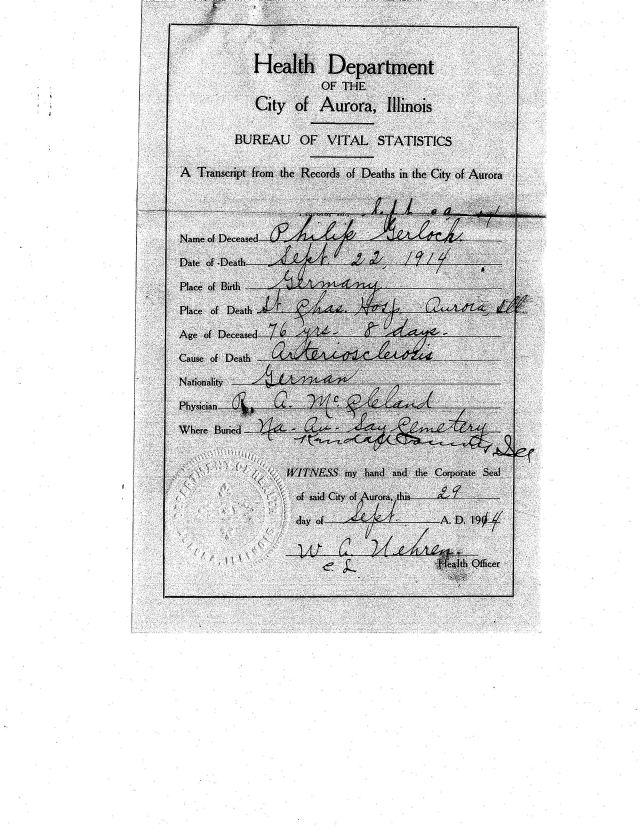 Health Department
OF THE
City of Aurora, Illinois
BUREAU OF VITAL STATISTICS
A Transcript from the Records of Deaths in the City of Aurora
Sept
Name of Deceased Philip Gerloch
Date of Death Sept. 22, 1914
Place of Birth Germany
Place of Death St. Chas. Hosp Aurora Ill
Age of Deceased 76 yrs. 8 days.
Cause of Death Arteriosclerosis
Nationality German
Physician R. A. McCleland
Where Buried Na-Au-Say Cemetery
Kendall County, Ill
WITNESS my hand and the Corporate Seal
of said City of Aurora, this 29
day of Sept. A. D. 1914
W A Nehren.
Health Officer
DEPARTMENT OF HEALTH
AURORA, ILLINOIS